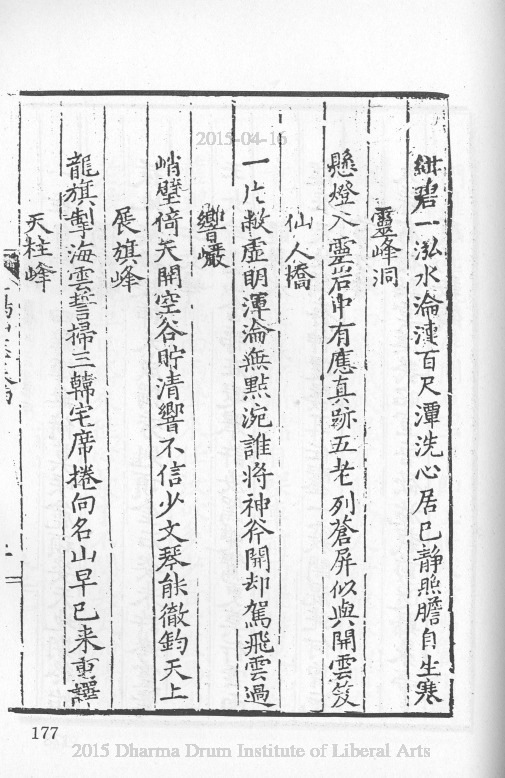 紺碧一泓水淪漣百尺潭洗心居已靜照膽自生寒
靈峰洞
懸燈入靈岩中有應真跡五老列蒼屏似與開雲笈
仙人橋
一片敞虛明渾淪無點涴誰將神斧開却駕飛雲過
響巖
峭壁倚天開空谷貯清響不信少文琴能徹鈞天上
展旗峰
龍旗掣海雲誓掃三韓宅席捲向名山早已来東
天柱峰
177
2015-04-16
2015 Dharma Drum Institute of Liberal Arts